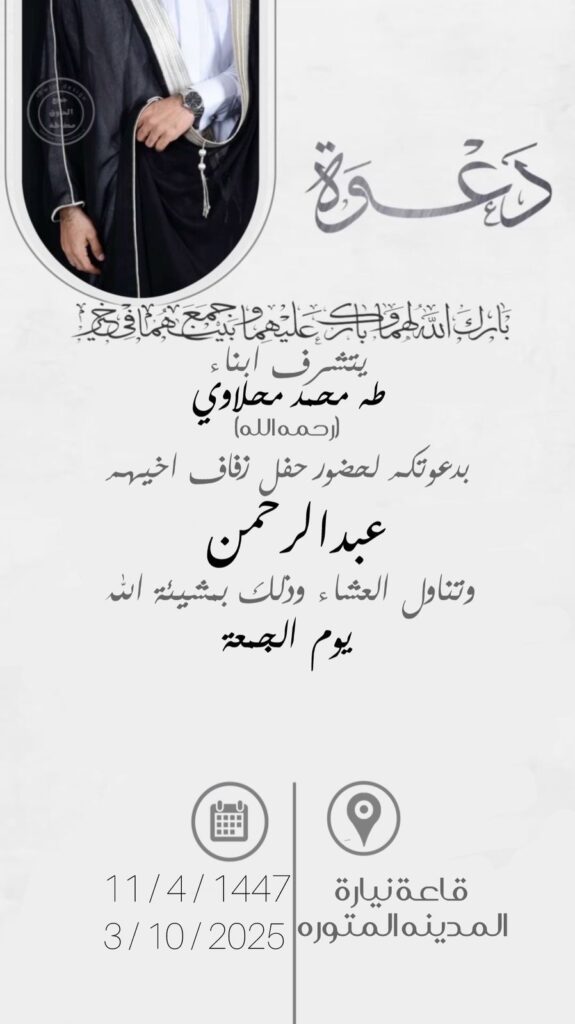 دَعْوَة
بَارَكَ اللَّهُ لَهُمَا وَبَارَكَ عَلَيْهِمَا وَجَمَعَ بَيْنَهُمَا فِي خَيْر
يتشرف ابناء
طه محمد محلاوي
(رحمه الله)
بدعوتكم لحضور حفل زفاف اخيهم
عبدالرحمن
وتناول العشاء وذلك بمشيئة الله
يوم الجمعة
قاعة نيارة
المدينه المتوره
11 / 4 / 1447
3 / 10 / 2025